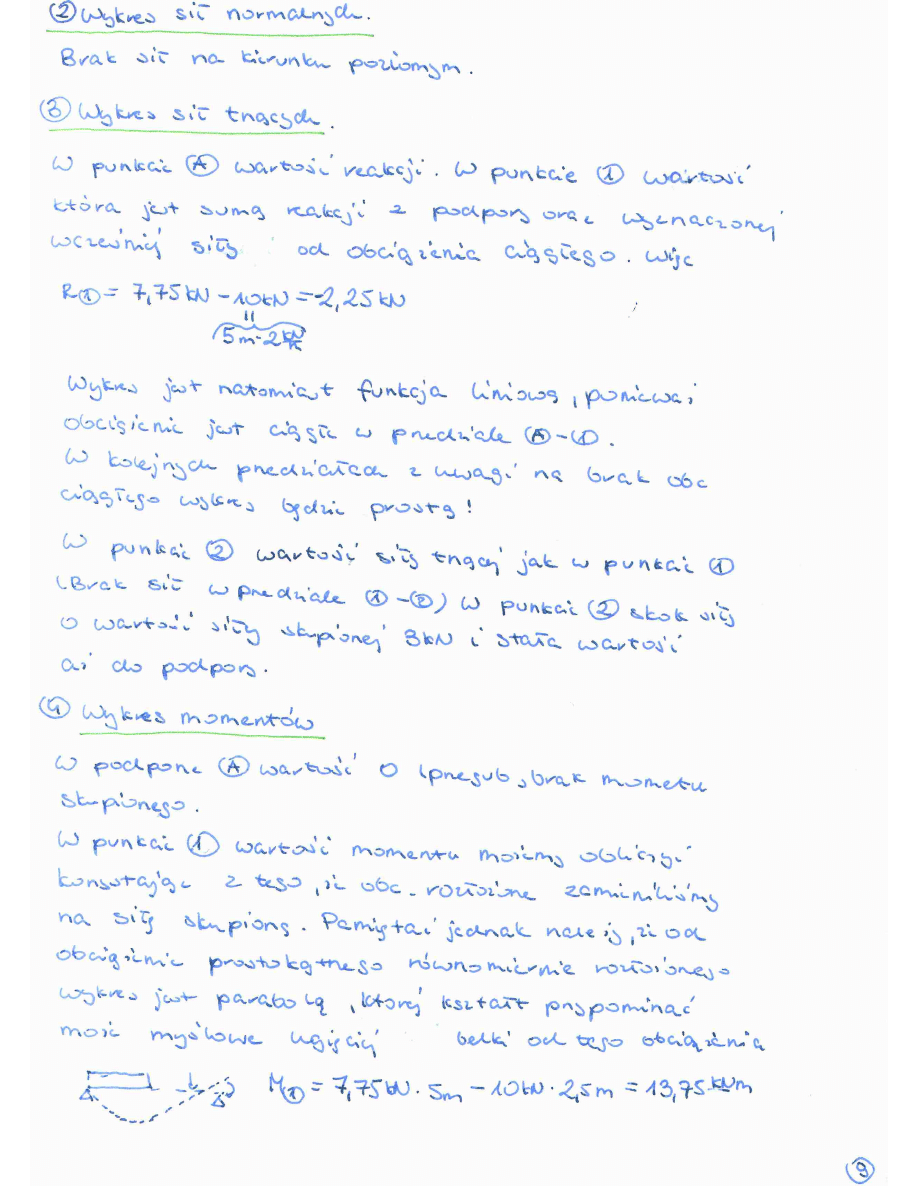 ② Wykres sił normalnych.
Brak sił na kierunku poziomym.
③ Wykres sił tnących.
W punkcie Ⓐ wartość reakcji. W punkcie ① wartość
która jest sumą reakcji z podpory oraz wyznaczonej
wcześniej siły od obciążenia ciągłego. Więc
R① = 7,75kN - 10kN = -2,25kN
5m·2kN/m
Wykres jest natomiast funkcja liniową, ponieważ
obciążenie jest ciągłe w przedziale Ⓐ-①.
W kolejnych przedziałach z uwagi na brak obc
ciągłego wykres będzie prostą!
W punkcie ② wartość siły tnącej jak w punkcie ①
(Brak sił w przedziale ①-②) W punkcie ② skok siły
o wartość siły skupionej 3kN i stała wartość
aż do podpory.
④ Wykres momentów
W podporze Ⓐ wartość 0 (przegub, brak mometu
skupionego.
W punkcie ① wartość momentu możemy obliczyć
korzystając z tego, że obc. rozłożone zamieniliśmy
na siłę skupioną. Pamiętać jednak należy, że od
obciążenia prostokątnego równomiernie rozłożonego
wykres jest parabolą, której kształt przypominać
może myślowe ugięcie belki od tego obciążenia
M① = 7,75kN · 5m - 10kN · 2,5m = 13,75kNm
⑨